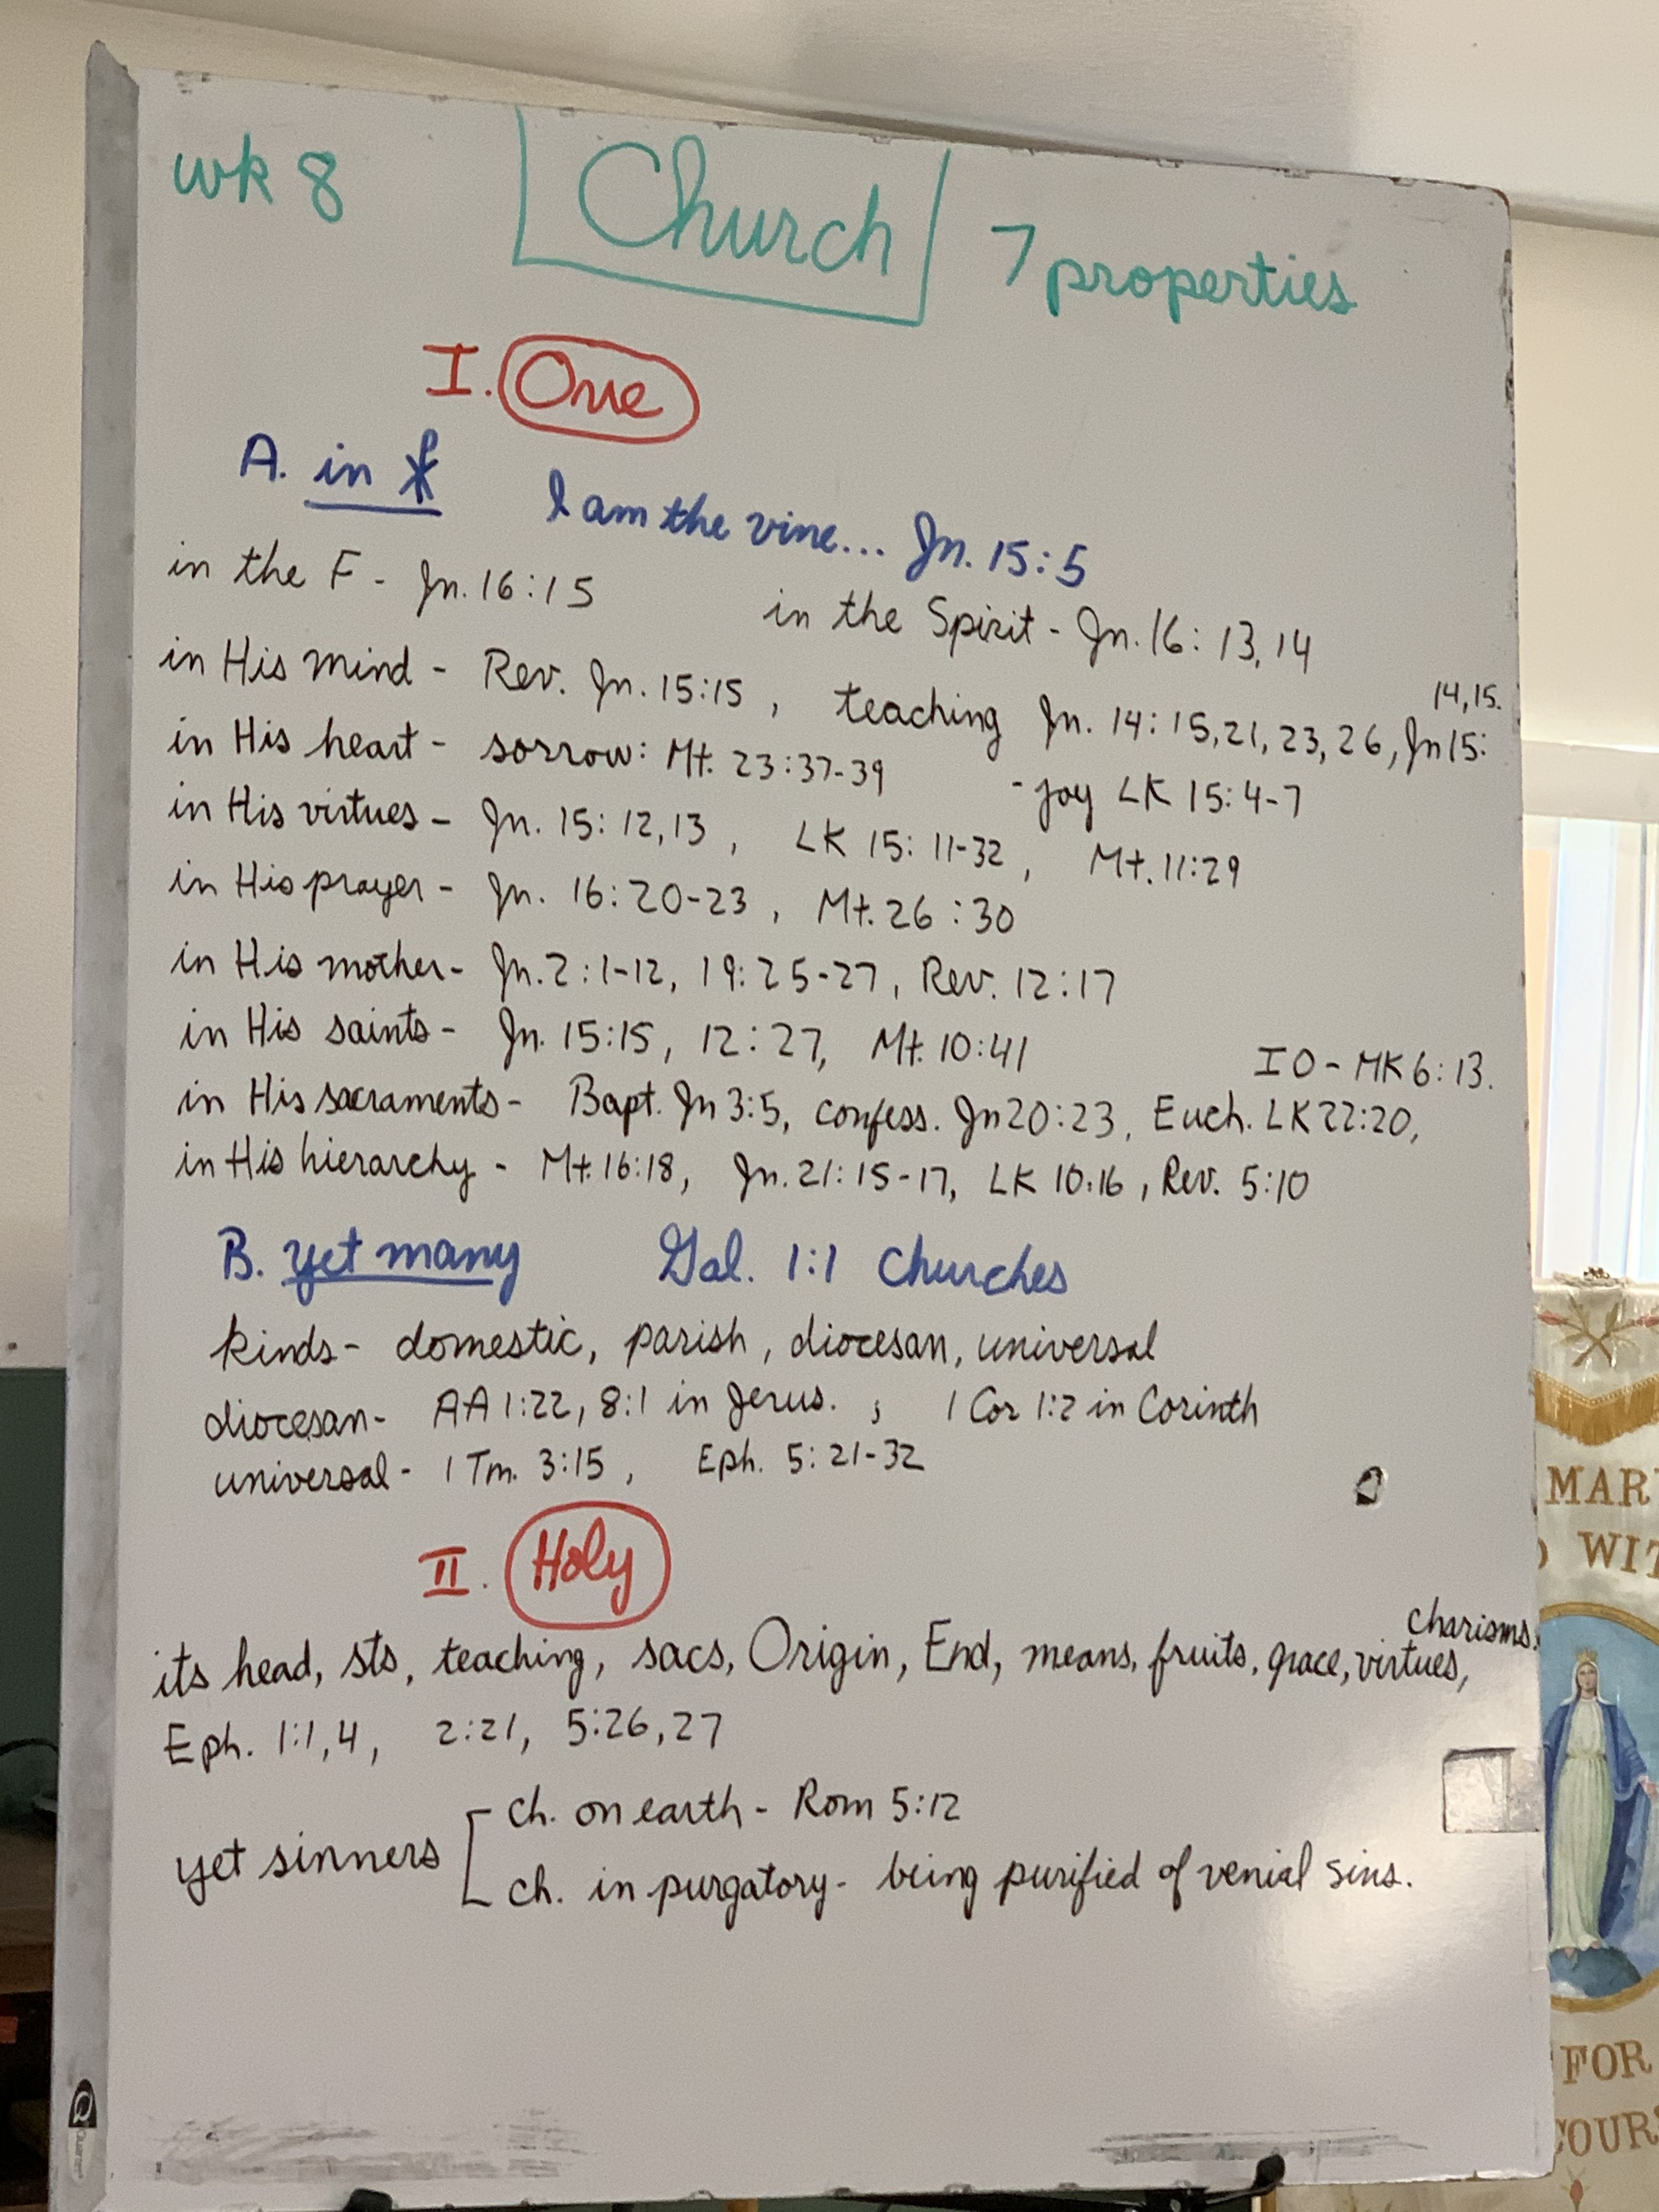 wk 8 Church 7 properties
I. One
A. in ☧ I am the vine... Jn. 15:5
in the F - Jn. 16:15 in the Spirit - Jn. 16: 13, 14
in His mind - Rev. Jn. 15:15, teaching Jn. 14: 15, 21, 23, 26, Jn 15: 14, 15.
in His heart - sorrow: Mt. 23:37-39 - joy LK 15:4-7
in His virtues - Jn. 15: 12, 13, LK 15: 11-32, Mt. 11:29
in His prayer - Jn. 16:20-23, Mt. 26:30
in His mother - Jn. 2:1-12, 19:25-27, Rev. 12:17
in His saints - Jn. 15:15, 12:27, Mt. 10:41
in His sacraments - Bapt. Jn 3:5, confess. Jn 20:23, Euch. LK 22:20, IO - MK 6:13.
in His hierarchy - Mt. 16:18, Jn. 21:15-17, LK 10:16, Rev. 5:10
B. yet many Gal. 1:1 Churches
kinds - domestic, parish, diocesan, universal
diocesan - AA 1:22, 8:1 in Jerus. ; 1 Cor 1:2 in Corinth
universal - 1 Tm. 3:15, Eph. 5: 21-32
II. Holy
its head, sts, teaching, sacs, Origin, End, means, fruits, grace, virtues, charisms.
Eph. 1:1, 4, 2:21, 5:26, 27
yet sinners
ch. on earth - Rom 5:12
ch. in purgatory - being purified of venial sins.
MAR
WIT
FOR
COUR
Quartet